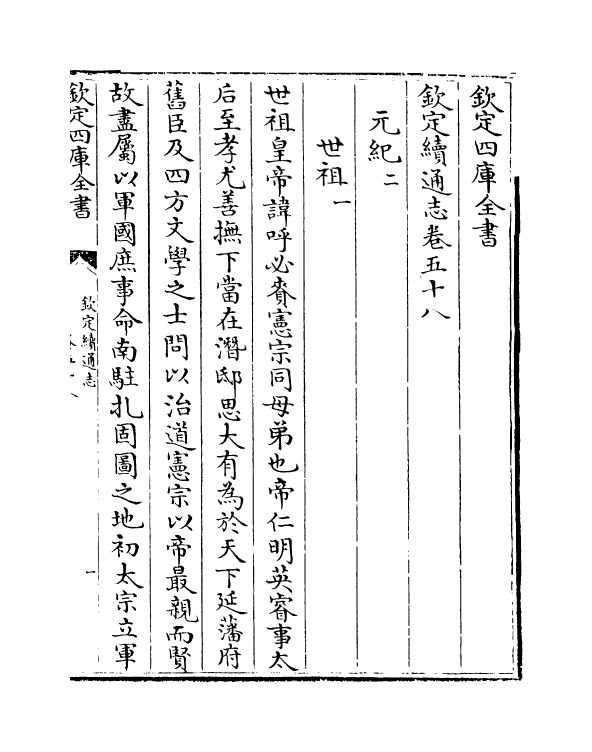 欽定四庫全書
欽定續通志卷五十八
元紀二
世祖一
世祖皇帝諱呼必賚憲宗同母弟也帝仁明英睿事太
后至孝尤善撫下當在潛邸思大有為於天下延藩府
舊臣及四方文學之士問以治道憲宗以帝最親而賢
故盡屬以軍國庶事命南駐扎固圖之地初太宗立軍
欽定四庫全書
欽定續通志
卷五十八
一